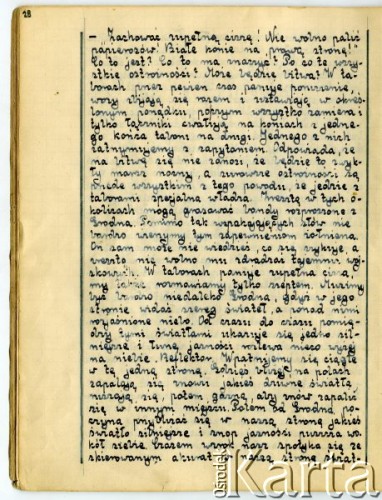 28
- "Zachować zupełną ciszę! Nie wolno palić
papierosów! Białe konie na "prawą stronę!"
Co to jest? Co to ma znaczyć? Po co te wszy-
stkie ostrożności? Może będzie bitwa? W ta-
borach przez pewien czas panuje poruszenie,
wozy zbijają się razem i ustawiają w okreś-
lonym porządku, poczem wszystko zamiera i
tylko łączniki cwałują na koniach z jedne-
go końca taboru na drugi. Jednego z nich
zatrzymujemy z zapytaniem. Odpowiada, że
na bitwę się nie zanosi, że będzie to zwyk-
ły marsz nocny, a surowsze ostrożności są
przede wszystkim z tego powodu, że jedzie z
taborami specjalna władza. Zresztą w tych o-
kolicach mogą grasować bandy rozproszone z
Grodna. Pomimo tak uspakajających słów nie
bardzo wierzymy tym zapewnieniom żołnierza.
On sam może nie wiedzieć, co się szykuje, a
zresztą nie wolno mu zdradzać tajemnic woj-
skowych. W taborach panuje zupełna cisza,
my także rozmawiamy tylko szeptem. Musimy
być bardzo niedaleko Grodna, gdyż w jego
stronie widać szereg świateł, a ponad nimi
wyjaśnione niebo. Od czasu do czasu pomię-
dzy tymi światłami ukazuje się jedno sil-
niejsze i łunę jasności rozlewa nieco wyżej
na niebie. Reflektor. Wpatrujemy się ciągle
w tę jedną stronę. Gdzieś bliżej na polach
zapalają się znowu jakieś dziwne światła
nikają się, potem gasną, aby znów zapalić
się w innym miejscu. Potem od Grodna, po-
czyna przybliżać się w naszą stronę jakieś
światło silniejsze i snop jasności puszcza wo-
kół siebie. Czasem wzrok nasz spotyka się ze
skierowanym akurat w naszą stronę świat-
Ośrodek
Karta